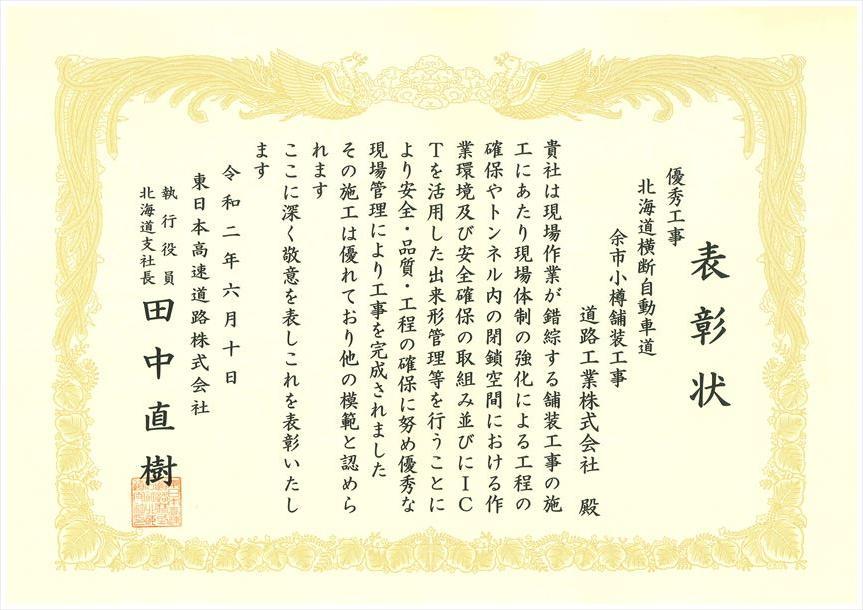 表彰状
優秀工事
北海道横断自動車道
余市小樽舗装工事
道路工業株式会社 殿
貴社は現場作業が錯綜する舗装工事の施
工にあたり現場体制の強化による工程の
確保やトンネル内の閉鎖空間における作
業環境及び安全確保の取組み並びにIC
Tを活用した出来形管理等を行うことに
より安全・品質・工程の確保に努め優秀な
現場管理により工事を完成されました
その施工は優れており他の模範と認めら
れます
ここに深く敬意を表しこれを表彰いたし
ます
令和二年六月十日
東日本高速道路株式会社
執行役員
北海道支社長
田中直樹